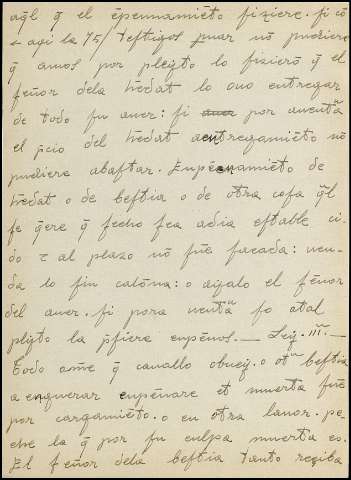 aq̃l q̃ el epennamiẽto fiziere. fi cõ
τ aqi la 75/ teftigos puar nõ pudiere
q̃ amos por pleyto lo fizierõ q̃ el
feñor dela h̃edat lo ouo entregar
de todo fu auer: fi por auentᵘᵃ
el p̃cio del h̃edat aentregamiẽto nõ
pudiere abaftar. Enpẽnamiẽto de
h̃edat o de beftia o de otra cofa q̃l
fe q̃ere q̃ fecho fea adia eftable
do τ al plazo nõ fuẽ facada: uen
da lo fin calõna: o ayalo el feñor
del auer. fi pora uentᵃ fo atal
pleyto la p̃fiera enpẽnos. — Ley. IIIᵃ. —
Todo om̃e q̃ cauallo obuey. o otᵃ beftia
a enquerar enpẽnare et muerta fuẽ
por cargamiẽto. o en otra lauor. pe
che la q̃ por fu culpa muerta es.
El feñor dela beftia tanto reciba